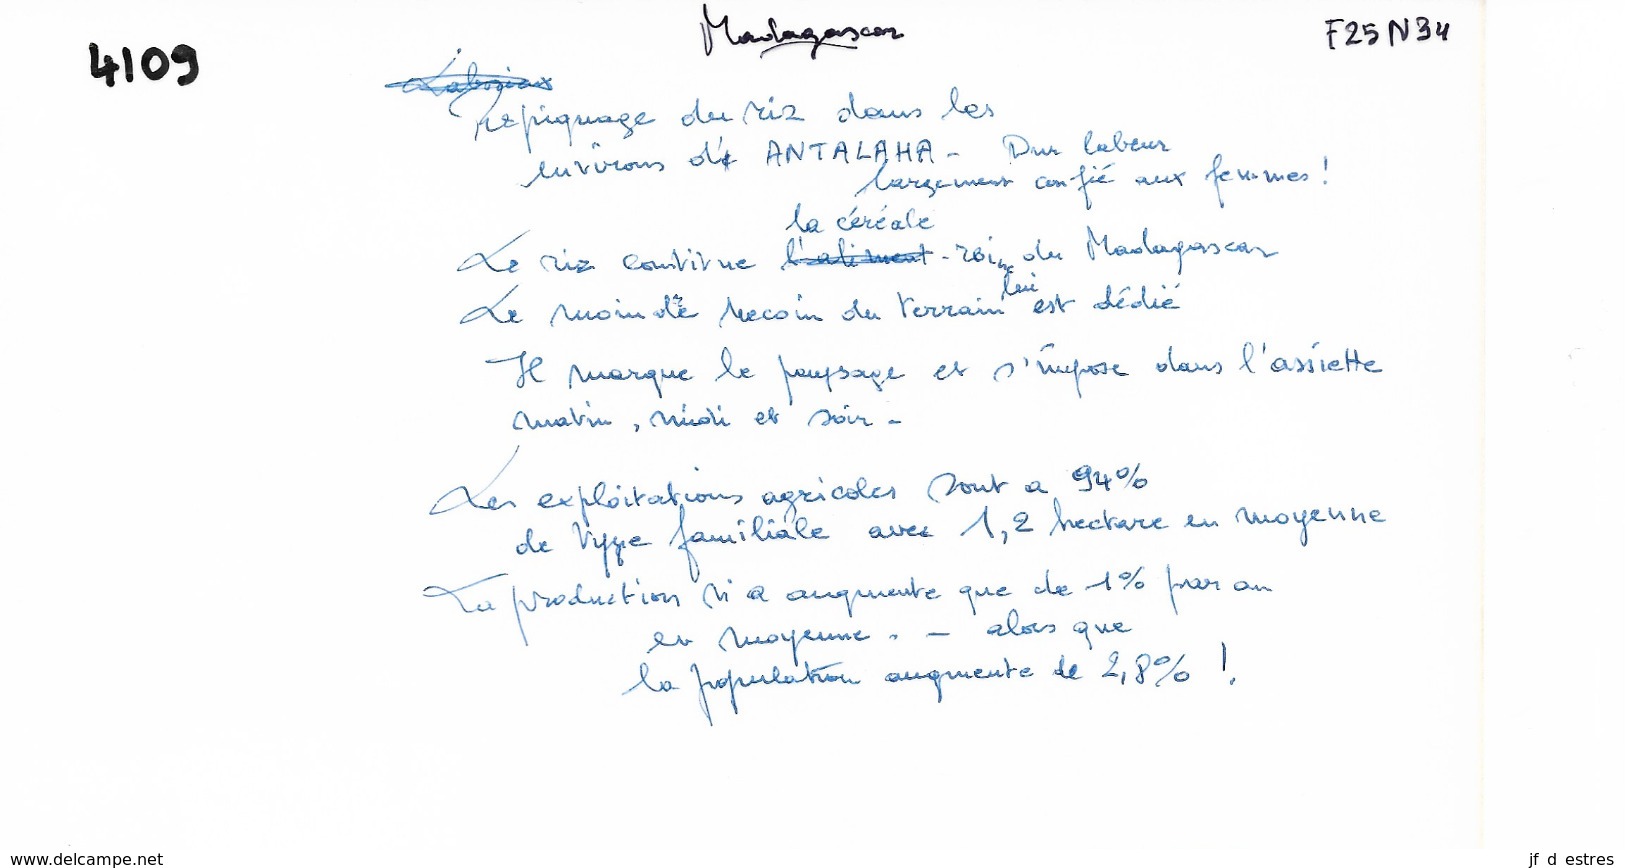 Madagascar
F25 N34
4109
Repiquage du riz dans les
environs d' ANTALAHA - Dur labeur
largement confié aux femmes !
la céréale
Le riz constitue l'aliment - reine du Madagascar
Le moindre recoin du terrain lui est dédié
Il marque le paysage et s'impose dans l'assiette
matin, midi et soir -
Les exploitations agricoles sont a 94%
de type familiale avec 1,2 hectare en moyenne
La production n'a augmente que de 1% par an
en moyenne. - alors que
la population augmente de 2,8% !
www.delcampe.net
jf d estres